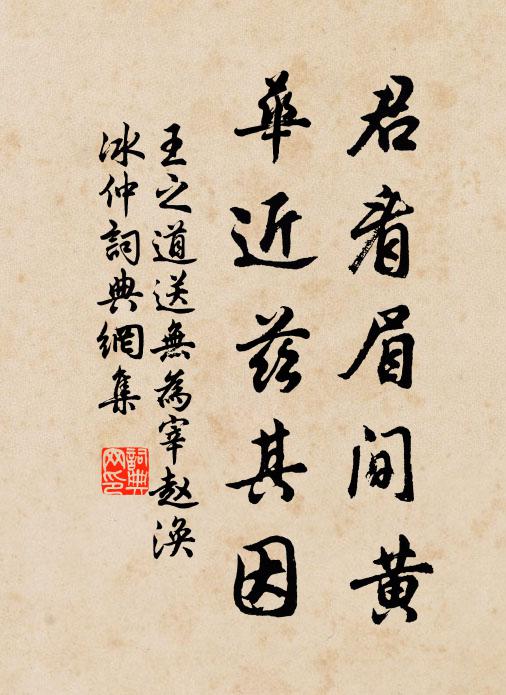 君看眉间黄
华近兹其因
王之道送無為宰赵涣
冰仲詞典網集
詞典
网印